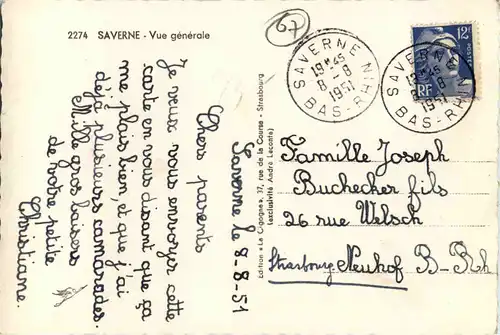 2274 SAVERNE - Vue générale
67
Saverne le 8-8-51
Chers parents
Je veux vous envoyer cette
carte en vous disant que ça
me plais bien, et que j'ai
déjà plusieurs camarades.
Mille gros baisers
de votre petite
Christiane.
Edition «La Cigogne», 37, rue de la Course - Strasbourg
(exclusivité André Leconte)
SAVERNE
19H45
8-8
1951
BAS-RHIN
SAVERNE
19H45
8-8
1951
BAS-RHIN
12F
POSTES
RF
Famille Joseph
Buchecker fils
26 rue Welsch
Strasbourg Neuhof B-Rh